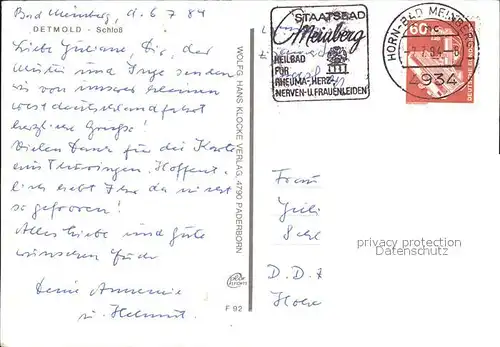 Bad Meinberg, d. 6 7 84
DETMOLD - Schloß
Liebe Juliane, Dir, der
Mutti und Inge senden
wir von unserer kleinen
Westdeutschlandfahrt
herzliche Grüße!
Vielen Dank für die Karte
aus Thüringen. Hoffent-
lich habt Ihr da nicht
so gefroren!
Alles Liebe und Gute
wünschen Euch
Deine Annemie
u. Helmut.
WOLFG. HANS KLOCKE VERLAG, 4790 PADERBORN
F 92
STAATSBAD
Meinberg
HEILBAD
FÜR
RHEUMA-HERZ-
NERVEN-U.FRAUENLEIDEN
HORN-BAD MEINBERG
934
60
DEUTSCHE BUNDESPOST
Frau
D.D.R
privacy protection
Datenschutz